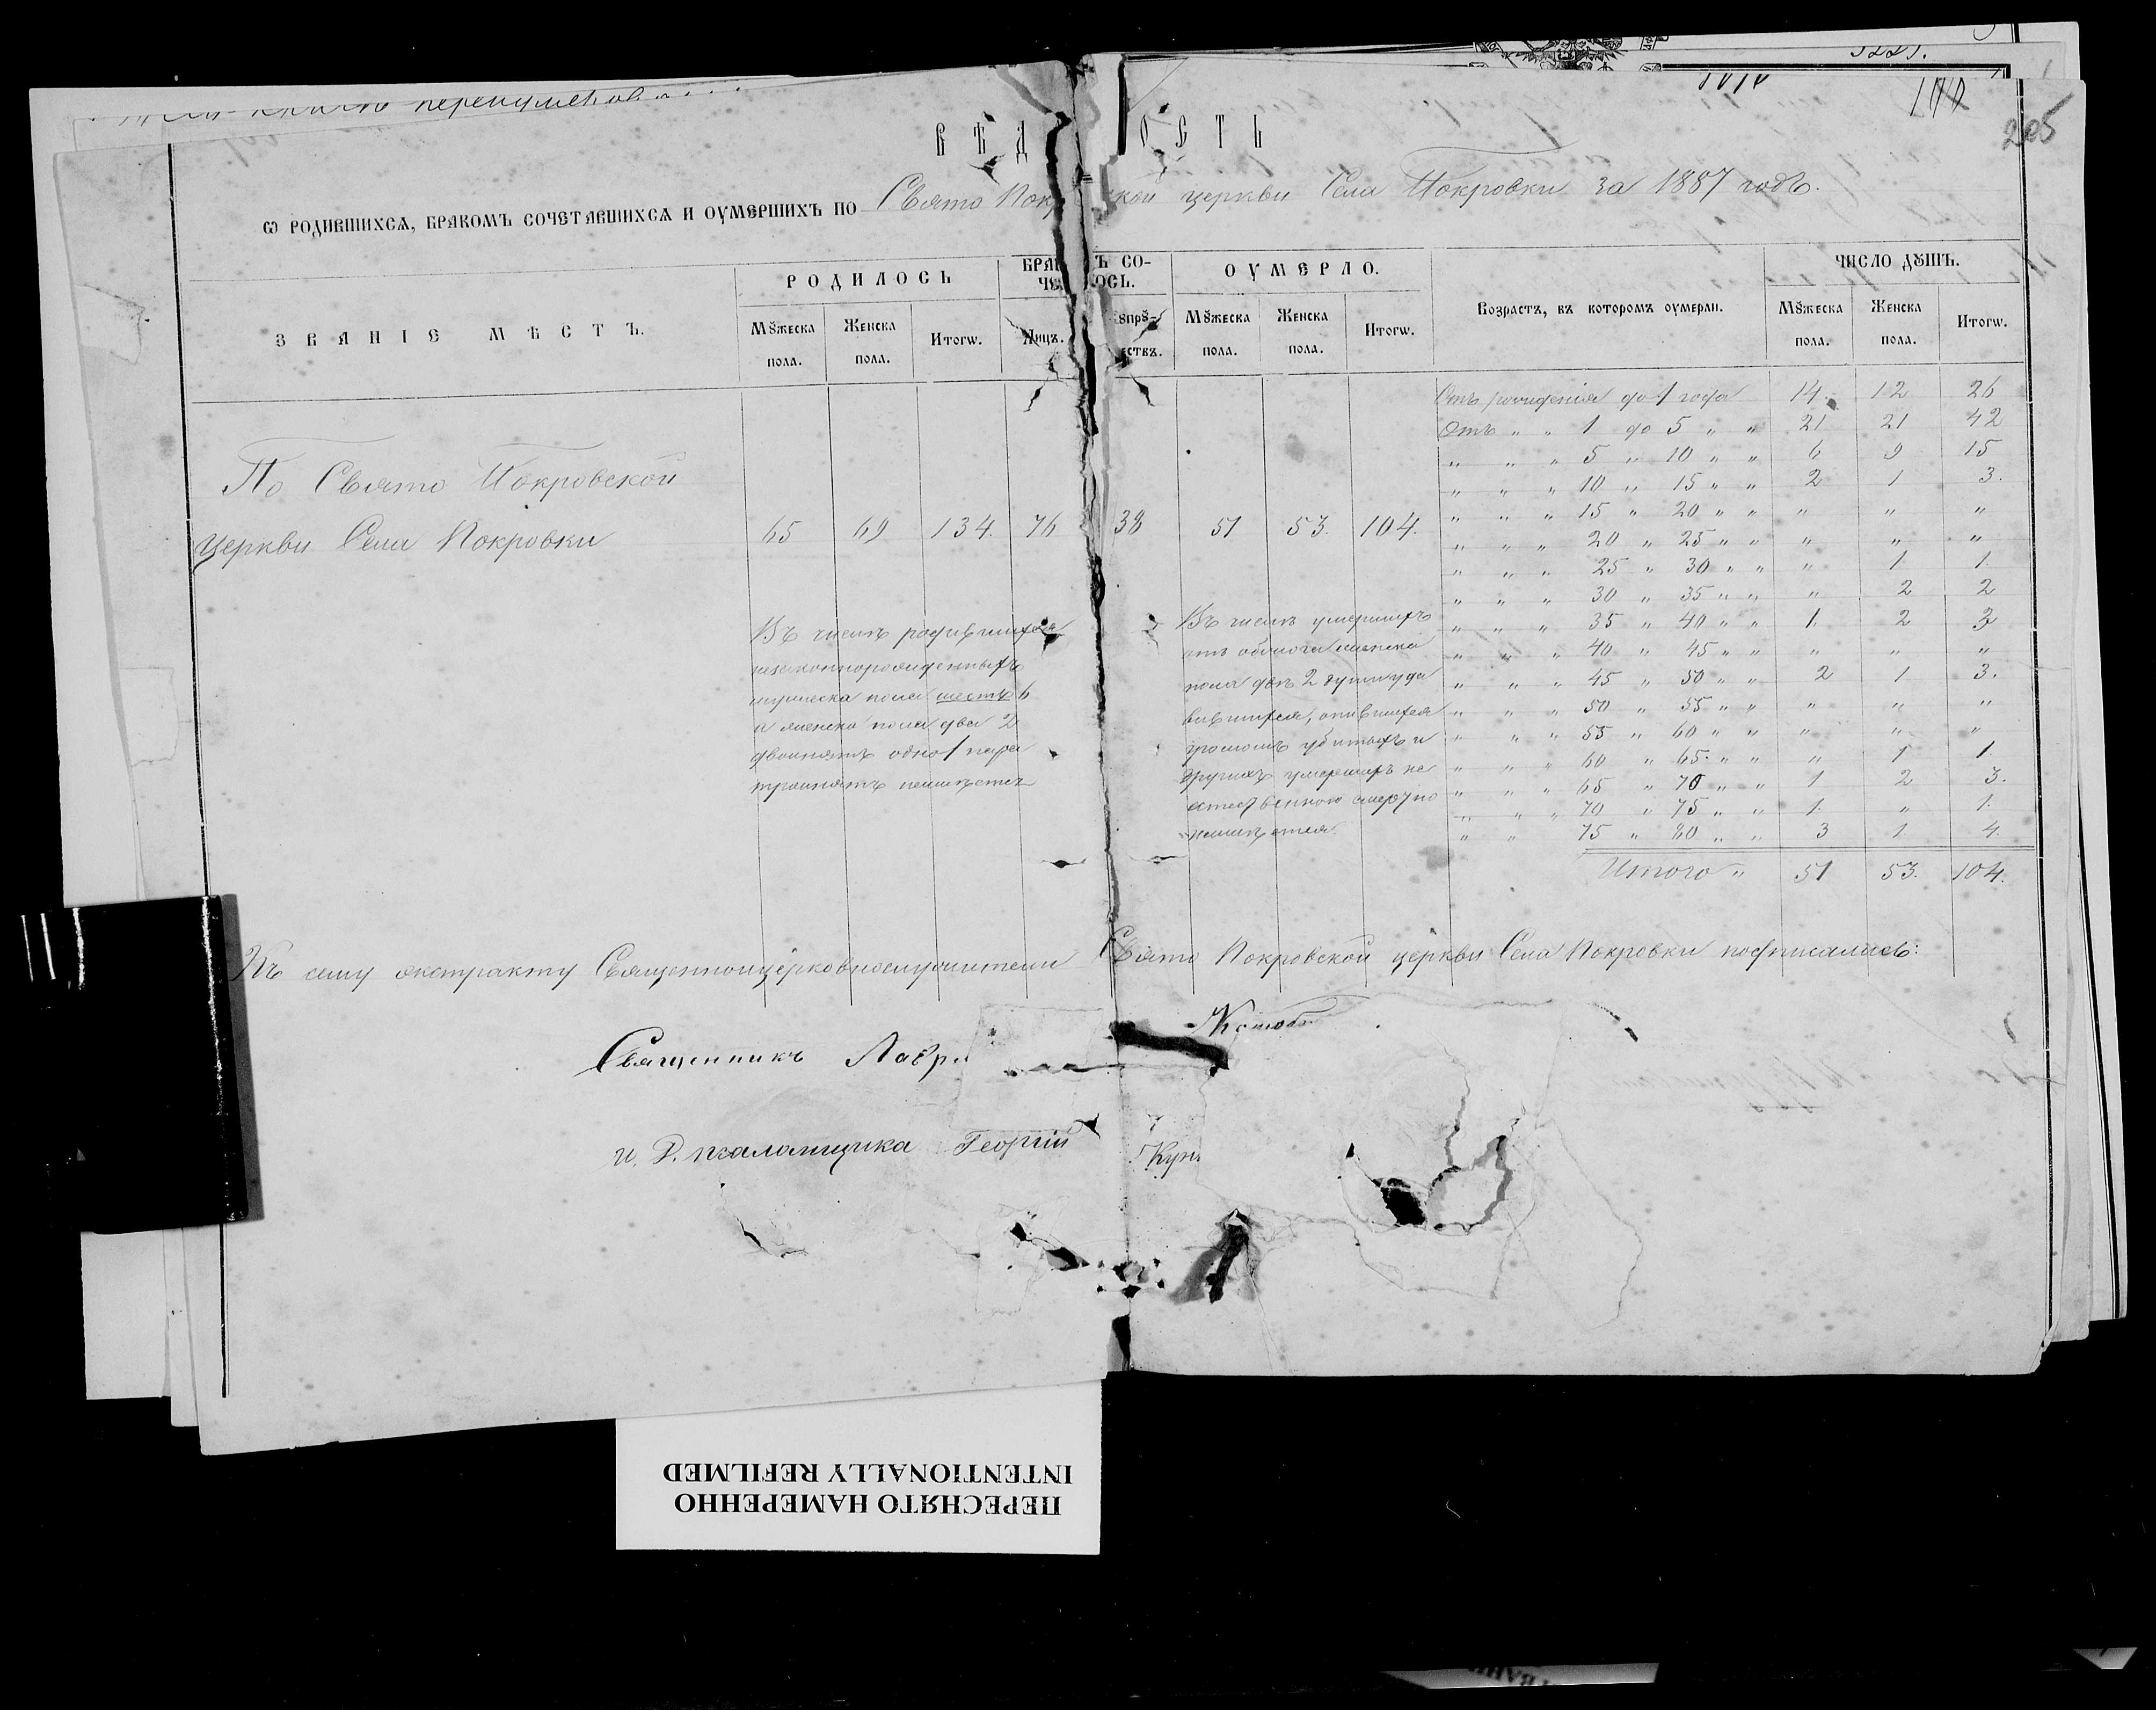 205
ВѢД ОСТЬ
Ѡ РОДИВШИХСѦ, БРАКОМЪ СОЧЕТАВШИХСѦ И ОУМЕРШИХЪ ПО Свято Пок кой церкви Села Покровки за 1887 годъ.
ЗВАНІЕ МѢСТЪ.
РОДИЛОСЬ
БРА Ъ СО-
ЧЕ ОСЬ.
ОУМЕРЛО.
Возрастъ, въ которомъ оумерли.
ЧИСЛО ДꙊШЪ.
Мꙋжеска пола.
Женска пола.
Итогѡ.
Лицъ.
Мꙋжеска пола.
Женска пола.
Итогѡ.
Мꙋжеска пола.
Женска пола.
Итогѡ.
По Свято Покровской
церкви Села Покровки 65 69 134. 76 38 51 53. 104.
Отъ рожденія до 1 года 14. 12 26
Отъ „ „ 1 до 5 „ „ 21 21 42
„ „ „ 5 „ 10 „ „ 6 9 15
„ „ „ 10 „ 15 „ „ 2 1 3.
„ „ „ 15 „ 20 „ „ „ „ „
„ „ „ 20 „ 25 „ „ „ „ „
„ „ „ 25 „ 30 „ „ „ 1 1.
„ „ „ 30 „ 35 „ „ „ 2 2
„ „ „ 35 „ 40 „ „ 1. 2 3
„ „ „ 40 „ 45 „ „ „ „ „
„ „ „ 45 „ 50 „ „ 2 1 3.
„ „ „ 50 „ 55 „ „ „ „ „
„ „ „ 55 „ 60 „ „ „ „ „
„ „ „ 60 „ 65. „ „ „ 1 1.
„ „ „ 65 „ 70 „ „ 1 2 3.
„ „ „ 70 „ 75 „ „ 1. „ 1.
„ „ 75 „ 80 „ „ 3 1. 4.
Итого „ 51 53. 104.
Въ числѣ родившихся
незаконнорожденныхъ
мужеска пола шесть 6
и женска пола два 2
двоинятъ одно 1 пара
троинятъ неимѣется
Въ числѣ умершихъ
отъ женска
пола двѣ 2 души уда
вившихся, опившихся
громомъ убитыхъ и
другихъ умершихъ не
естественною смертію
неимѣется.
Къ сему экстракту Священноцерковнослужители Свято Покровской церкви Села Покровки подписались:
Священникъ Лавр
И. Д. псаломщика Георгій Кун
ПЕРЕСНЯТО НАМЕРЕННО
INTENTIONALLY REFILMED